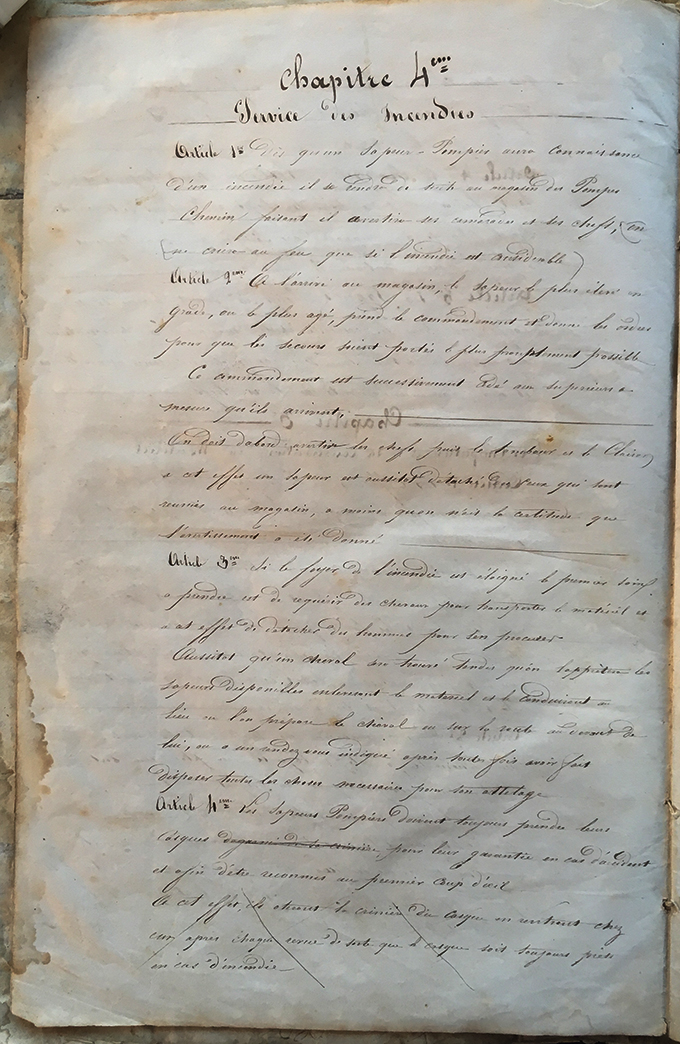 Chapitre 4ème
Service des Incendies
Article 1er Dès qu'un Sapeur-Pompier aura connaissance
d'un incendie il se rendra de suite au magasin des Pompes
Chemin faisant il avertira ses camarades et ses chefs, (on
ne criera au feu que si l'incendie est considérable)
Article 2ème A l'arrivé au magasin, le Sapeur le plus élevé en
grade, ou le plus agé, prend le commandement et donne les ordres
pour que les secours soient portés le plus promptement possible
Ce commandement est successivement cédé aux supérieurs a
mesure qu'ils arrivent,
On doit d'abord avertir les chefs puis le tambour et le Clairon,
a cet effet un sapeur est aussitot détaché de ceux qui sont
reunies au magasin, a moins qu'on n'ait la certitude que
l'avertissement a été donné
Article 3ème Si le foyer de l'incendie est éloigné le premier soin
a prendre est de requérir des chevaux pour transporter le matériel et
a cet effet de détacher des hommes pour s'en procurer
Aussitot qu'un cheval est trouvé tandis qu'on l'apprêtera les
sapeurs disponibles enleveront le materiel et le conduiront au
lieu ou l'on prépare le cheval ou sur la route au devant de
lui, ou a un rendez-vous indiqué après toute fois avoir fait
disposer toutes les choses necessaires pour son attelage
Article 4ème Les Sapeurs Pompiers doivent toujours prendre leurs
Casques de la crinière, pour leur garantie en cas d'accident
et afin d'être reconnus au premier coup d'œil
A cet effet, ils oteront la crinière du casque en rentrant chez
eux après chaque service de sorte que le casque soit toujours prêt
en cas d'incendie